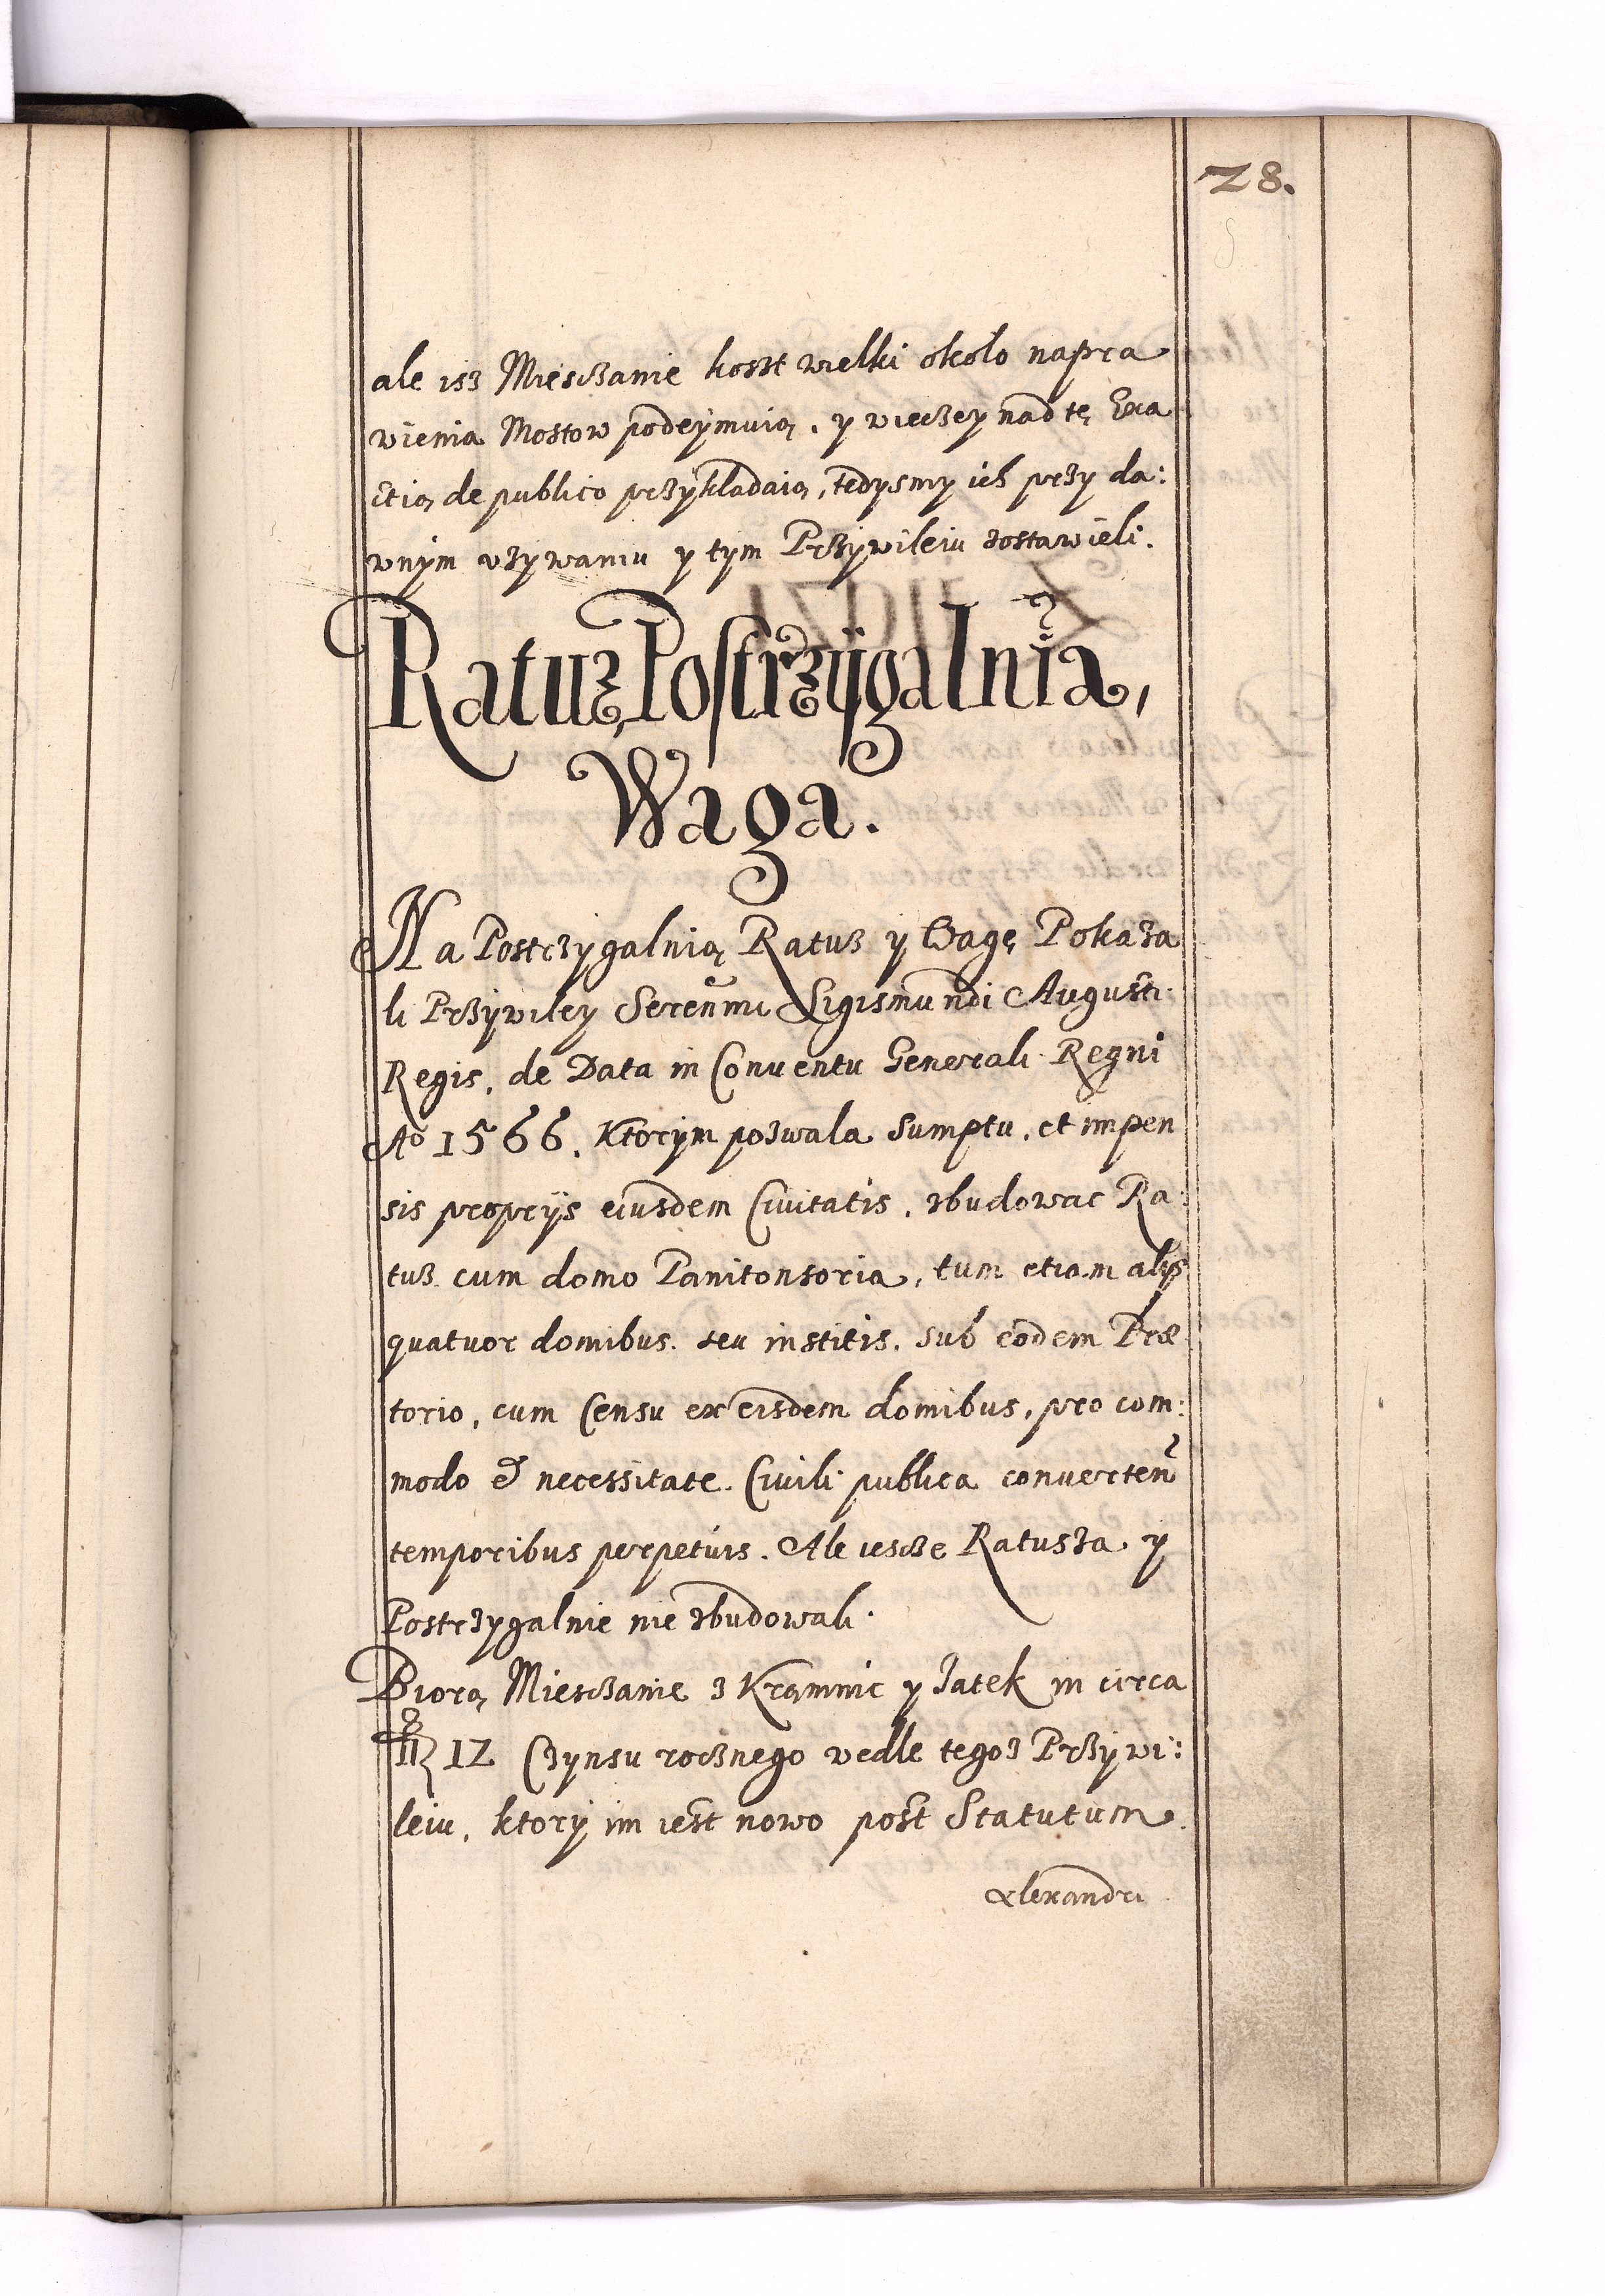 28.
ale isz Miesczanie koszt wielki około napra
wienia Mostow podeymuią, y wieczey nad tę Exa
ctią de publico przykładaią, tedysmy ich przy da:
wnym vzywaniu y tym Przywileiu zostawieli.
Ratusz, Postrzygalnia,
Waga.
Na Postrzygalnią Ratusz y Wagę Pokaza
li Przywiley Serenmi Sigismundi Augusti
Regis, de Data in Conventu Generali Regni
Ao 1566. Ktorym pozwala sumptu, et impen
sis proprÿs eiusdem Civitatis, zbudowac Ra:
tusz cum domo Panitonsoria, tum etiam alÿs
quatuor domibus seu institis, sub eodem Præ
torio, cum Censu ex eisdem domibus, pro com:
modo et necessitate Civili publica converten
temporibus perpetuis. Ale iescze Ratusza y
Postrzygalnie nie zbudowali.
Biorą Miesczanie z Kramnic y Jatek in circa
12 Czynsu rocznego wedle tegoz Przywi:
leiu, ktory im iest nowo post Statutum
Alexandri